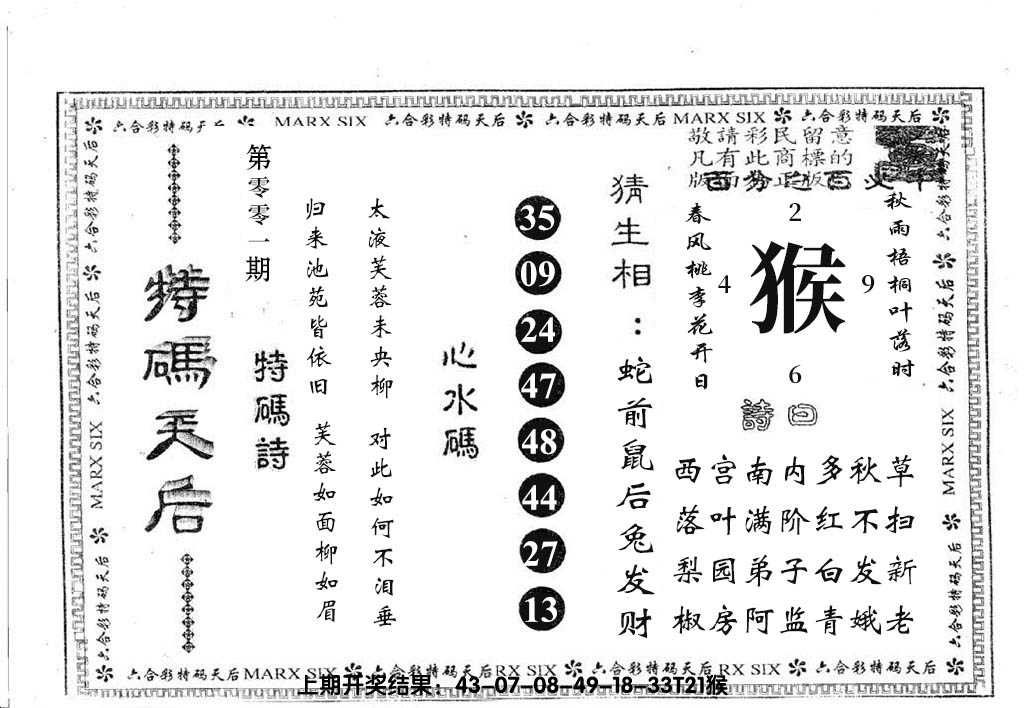 六合彩特码天后 MARX SIX 六合彩特码天后 六合彩特码天后 MARX SIX 六合彩特码天后
敬請彩民留意
凡有此商標的
特碼天后
第零零一期
特碼詩
归来池苑皆依旧 芙蓉如面柳如眉
太液芙蓉未央柳 对此如何不泪垂
心水碼
35
09
24
47
48
44
27
13
猜生相：蛇前鼠后兔发财
春风桃李花开日
2
4 猴 9
6
秋雨梧桐叶落时
詩曰
西宫南内多秋草
落叶满阶红不扫
梨园弟子白发新
椒房阿监青娥老
六合彩特码天后 MARX SIX 六合彩特码天后
六合彩特码天后 MARX SIX 六合彩特码天后
六合彩特码天后 MARX SIX 六合彩特码天后RX SIX 六合彩特码天后 RX SIX 六合彩特码天后
上期开奖结果：43-07-08-49-18-33T21猴